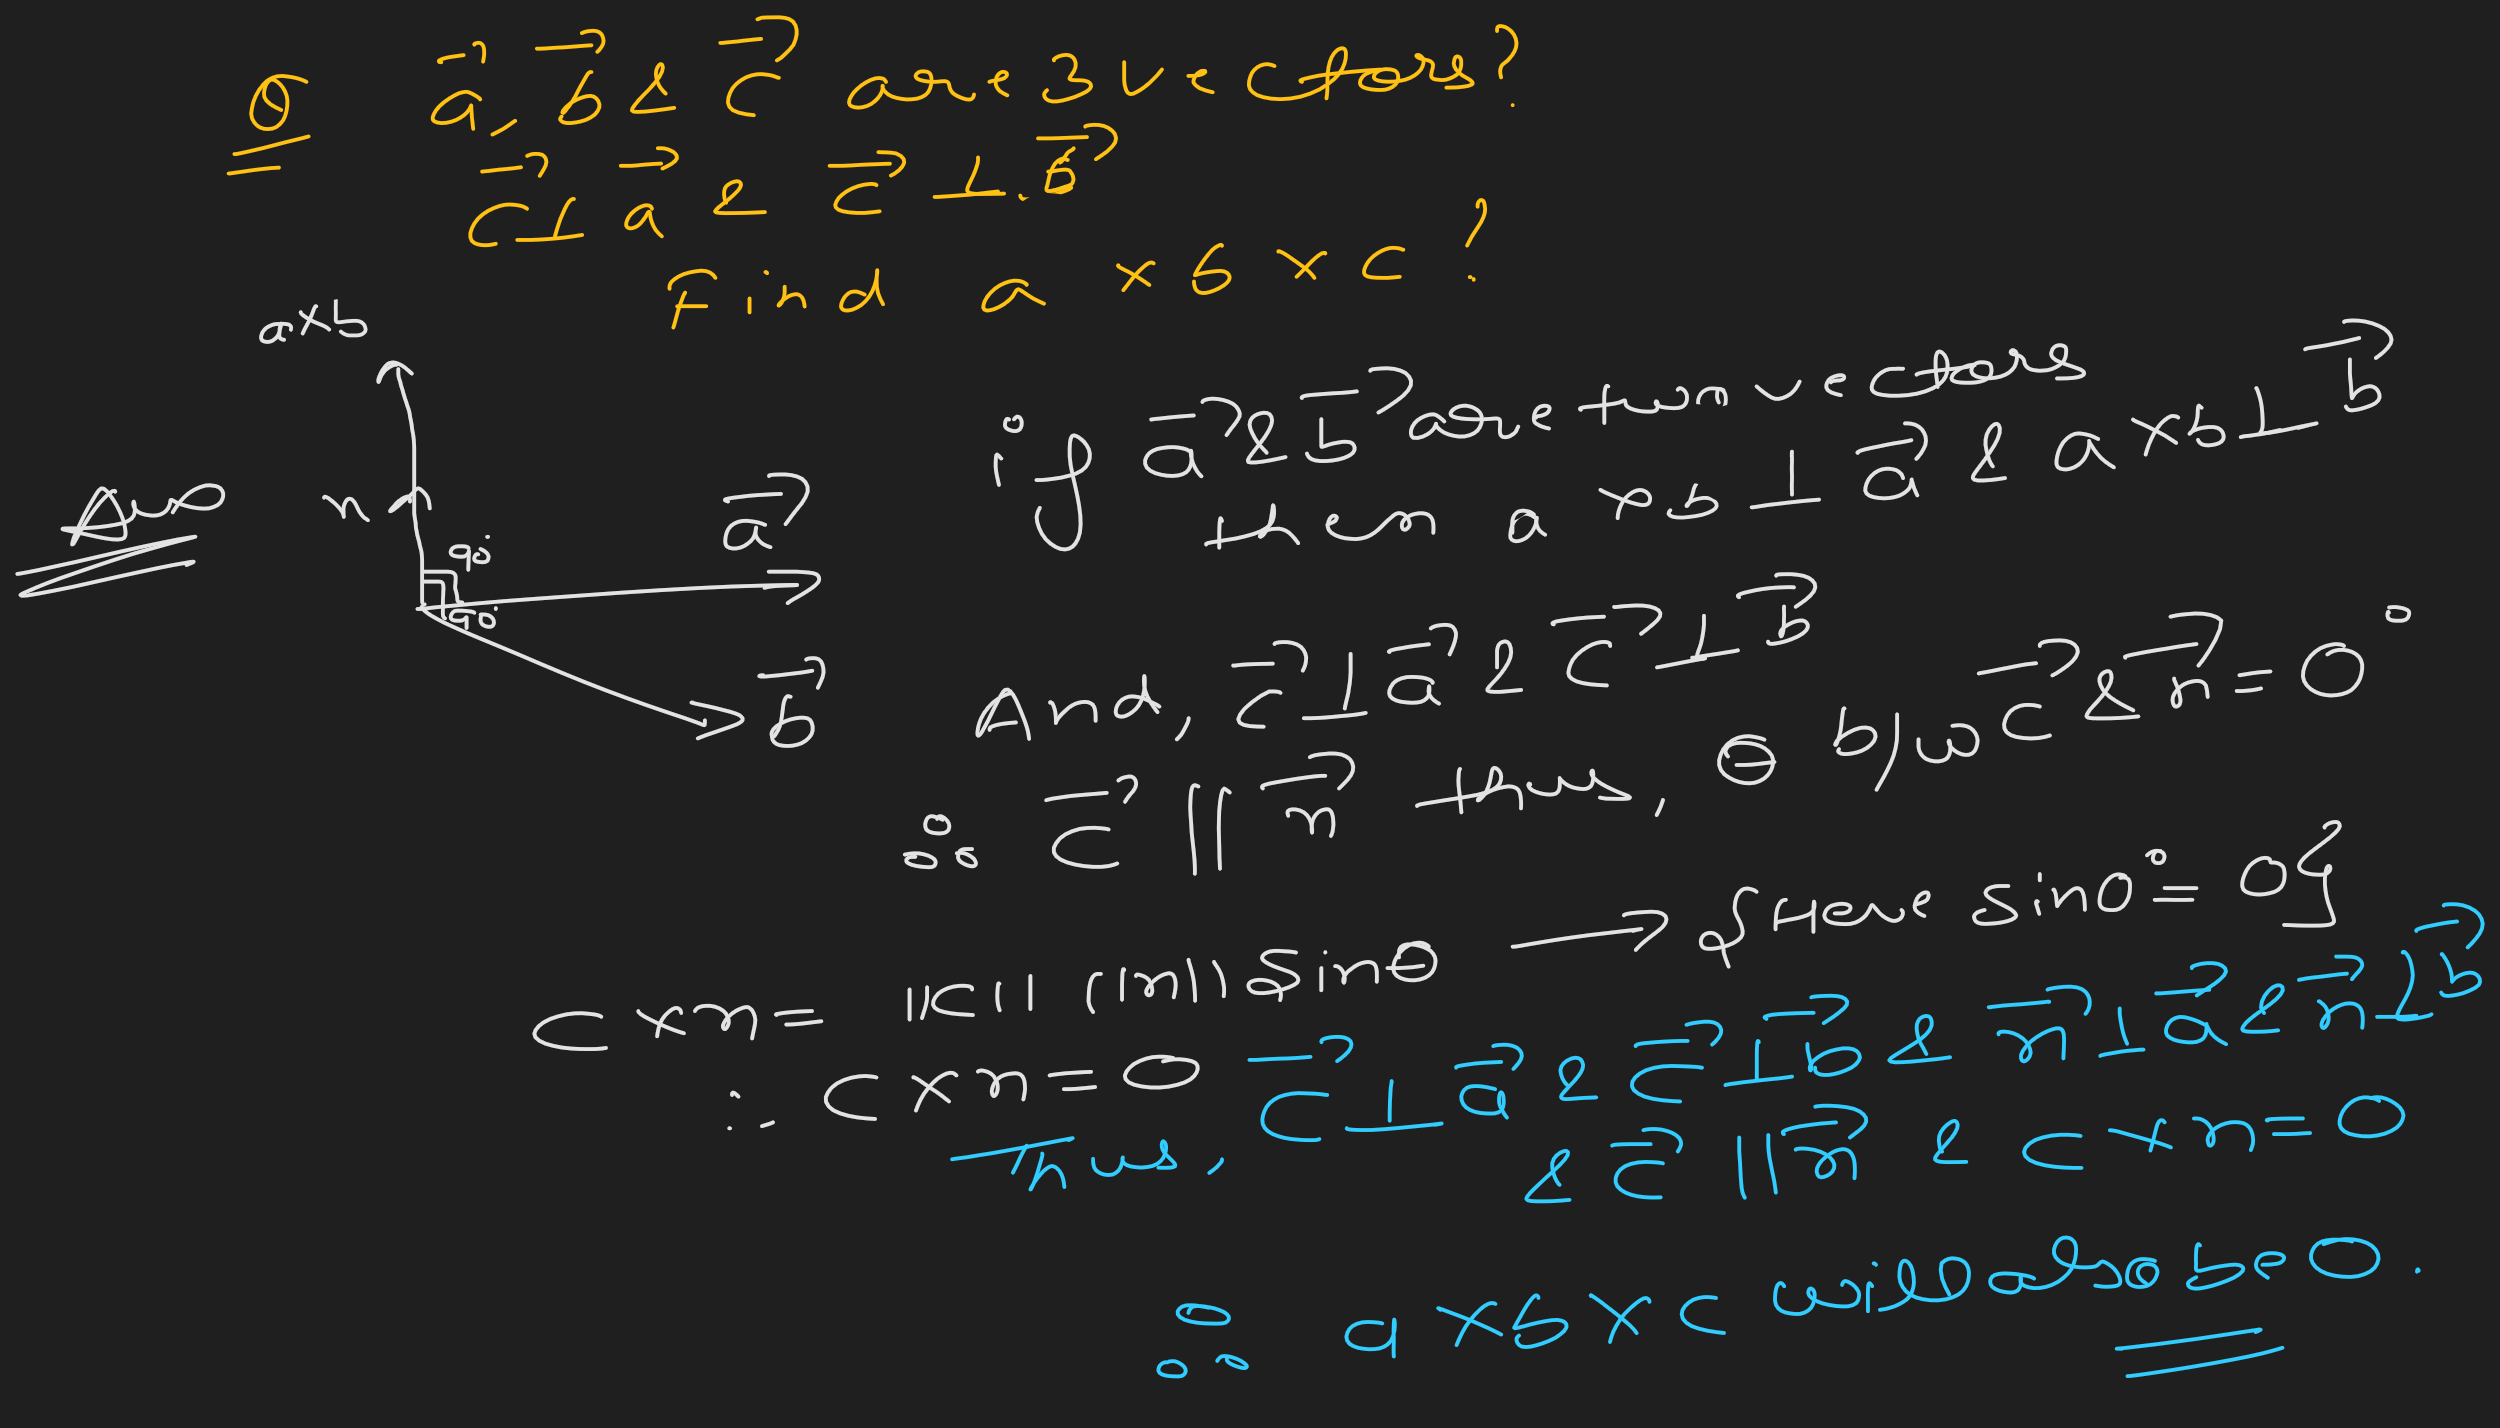 Q a⃗, b⃗ & c⃗ are 3 vectors?
c⃗ ⊥ a⃗ & c⃗ ⊥ b⃗
Find a × b × c ?
a×b
n
90°
90°
a⃗
b⃗
Ans
if a⃗ & b⃗ are two vectors
then a × b ⊥ a⃗ & a×b ⊥ b⃗
And, c⃗ ⊥ a⃗ & c⃗ ⊥ b⃗
∴ c⃗ || n⃗ thus, θ b/w c⃗ & n⃗ = 0°
c × n = |c| |n| sin θ → {Here sin 0° = 0}
∴ c × n = 0
Thus, c⃗ ⊥ a⃗ & c⃗ ⊥ b⃗ & n⃗ ⊥ a⃗ & n⃗ ⊥ b⃗
& c⃗ || n⃗ & c × n = 0
∴ a × b × c will also be 0.